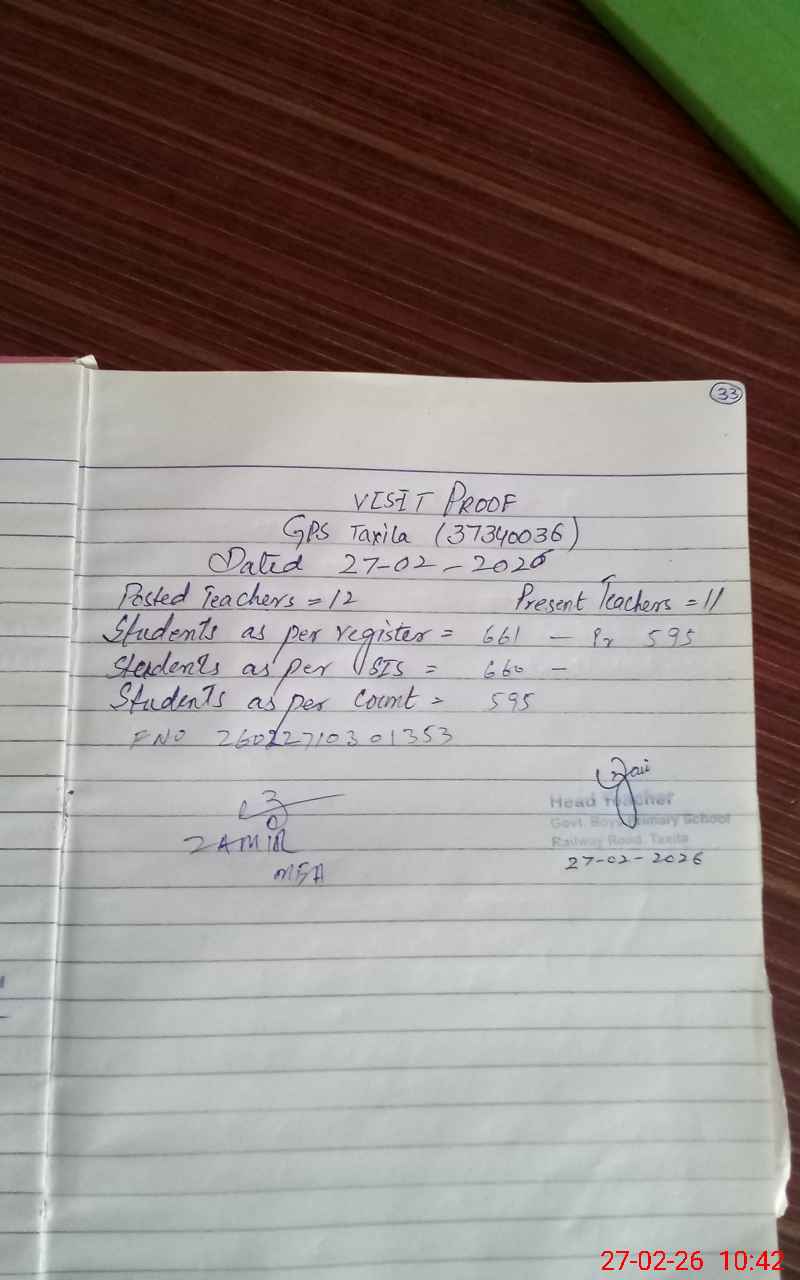 33
VISIT PROOF
GPS Taxila (37340036)
Dated 27-02-2026
Posted Teachers = 12 Present Teachers = 11
Students as per register = 661 - Pr 595
Students as per SIS = 660 -
Students as per Count = 595
FNO 26022710301353
ZAMIR
MEA
Head Teacher
Govt. Boys Primary School
Railway Road, Taxila
27-02-2026
27-02-26 10:42